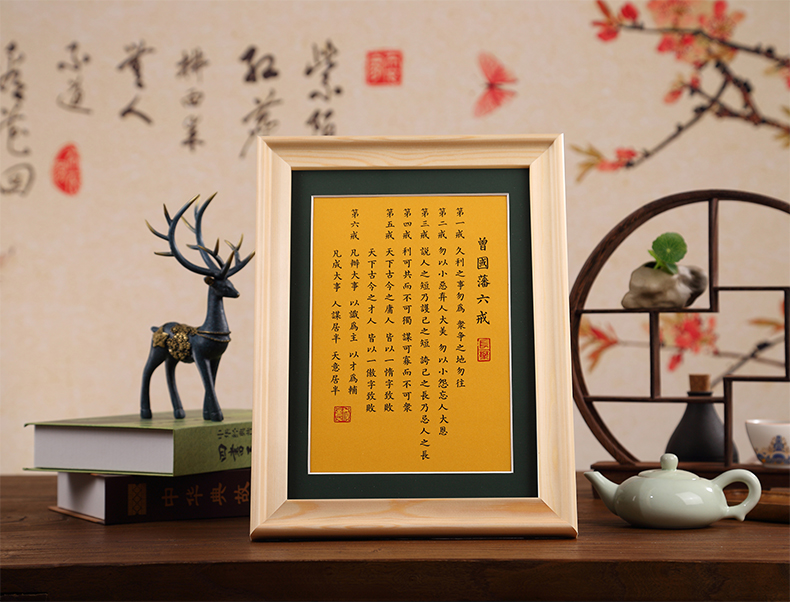 曾國藩六戒
第一戒 久利之事勿爲 衆爭之地勿往
第二戒 勿以小惡弃人大美 勿以小怨忘人大恩
第三戒 説人之短乃護己之短 誇己之長乃忌人之長
第四戒 利可共而不可獨 謀可寡而不可衆
第五戒 天下古今之庸人 皆以一惰字致敗
天下古今之才人 皆以一傲字致敗
第六戒 凡辦大事 以識爲主 以才爲輔
凡成大事 人謀居半 天意居半
四書
中华典故